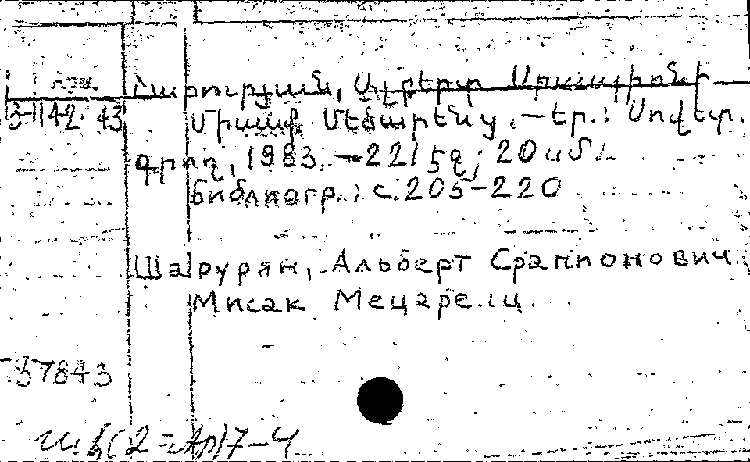 Շարուրյան, Ալբերտ Սրապիոնի
3-1142.43 Միսաք Մեծարենց.—Եր.: Սովետ.
գրող, 1983.—221 էջ; 20 սմ.
Библиогр.: с.205-220
Шарурян, Альберт Срапионович
Мисак Мецаренц.
57843